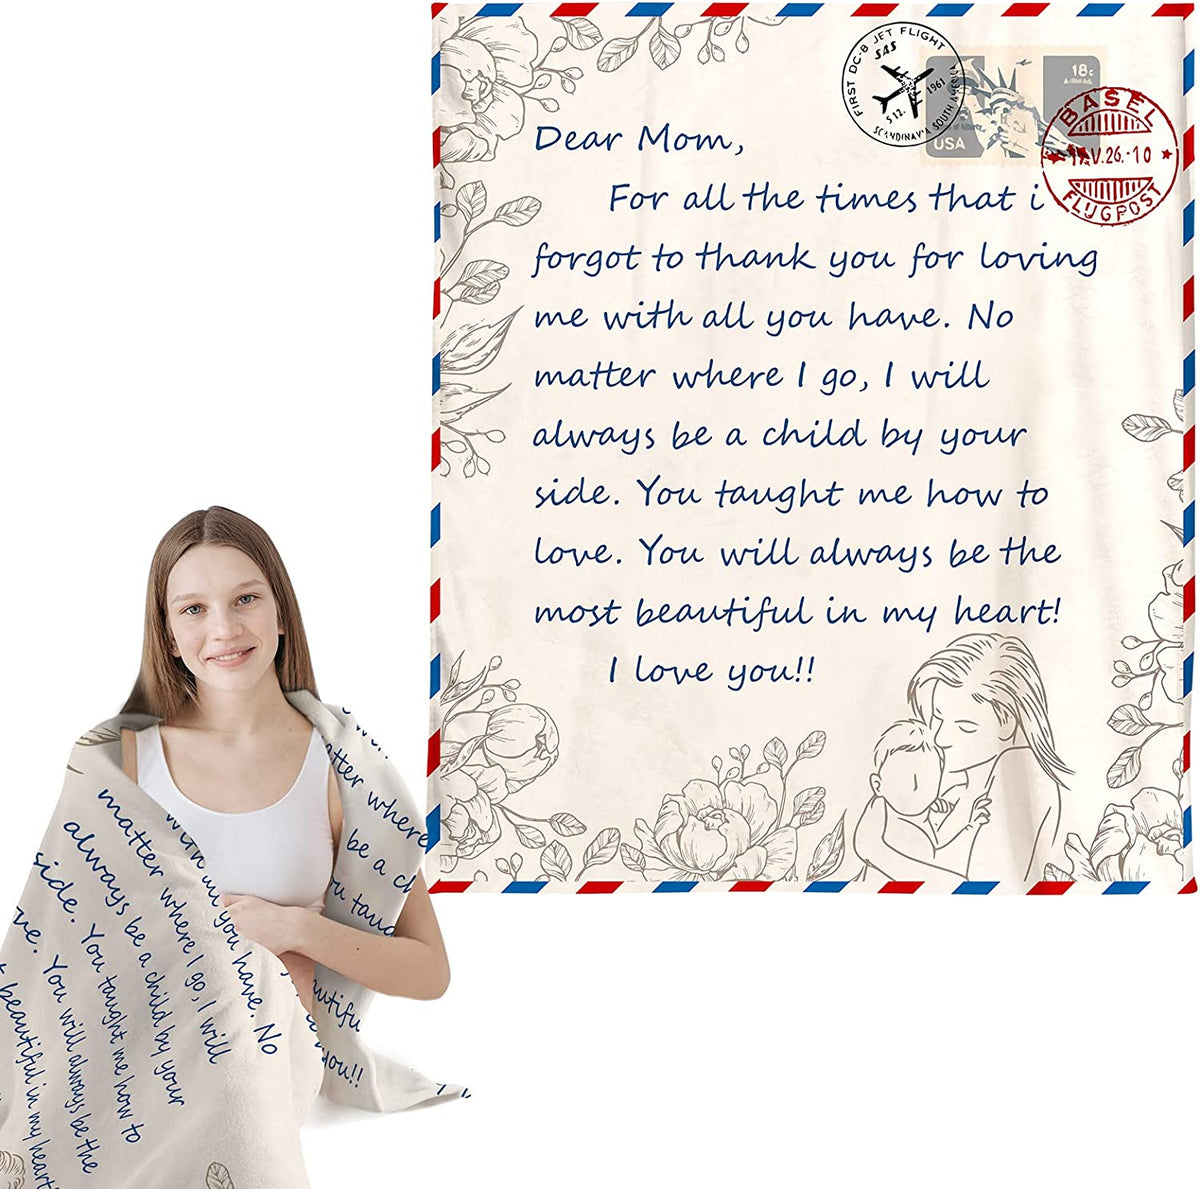 FIRST DC-8 JET FLIGHT
SAS
5.12. 1961
18c
USA
BASEL
V.26.-10
FLUGPOST
Dear Mom,
For all the times that i
forgot to thank you for loving
me with all you have. No
matter where I go, I will
always be a child by your
side. You taught me how to
love. You will always be the
most beautiful in my heart!
I love you!!
matter where
be a
you!!
you have. No
matter where I go, I will
always be a child by your
side. You taught me how to
You will always be the
beautiful in my heart